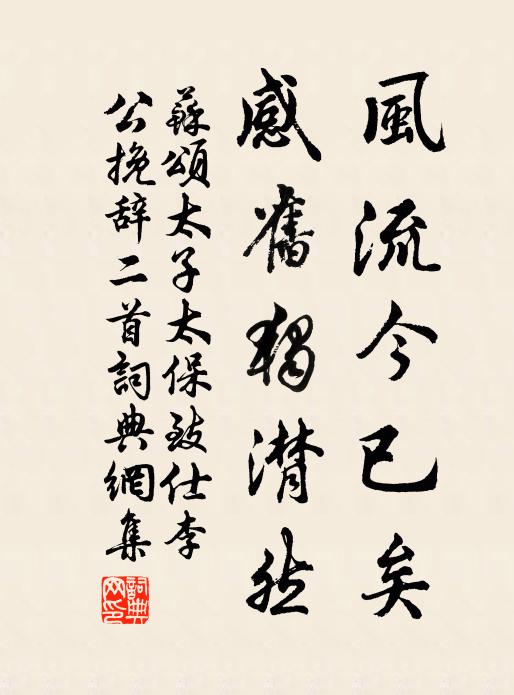 風流今已矣
感舊獨潸然
蘇頌太子太保致仕李
公挽辞二首詞典網集
詞典網印